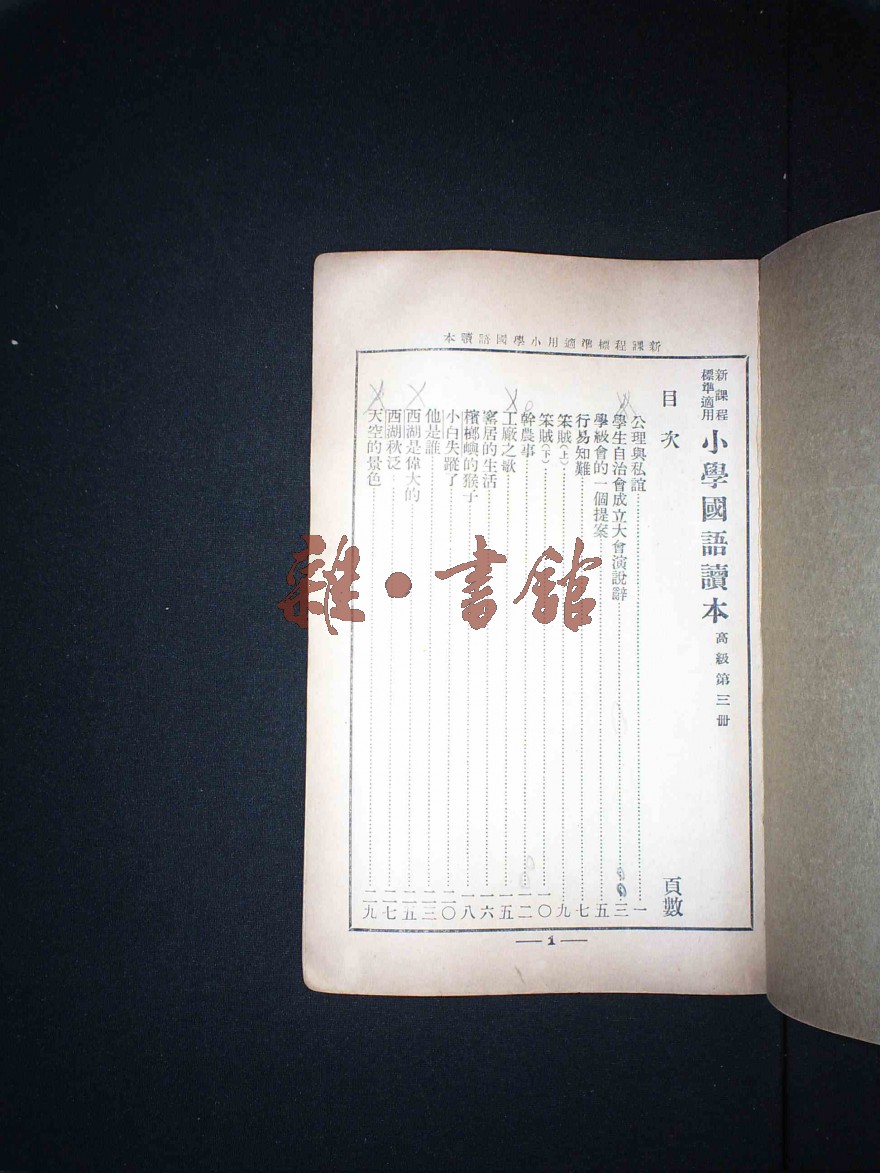 新課程標準適用小學國語讀本
新課程
標準適用
小學國語讀本 高級第三冊
目次 頁數
公理與私誼 一
學生自治會成立大會演說辭 三
學級會的一個提案 五
行易知難 七
笨賊(上) 九
笨賊(下) 一〇
幹農事 一二
工廠之歌 一五
窰居的生活 一六
檳榔嶼的猴子 一八
小白失蹤了 二〇
他是誰 二三
西湖是偉大的 二五
西湖秋泛 二七
天空的景色 二九
1
雜·書館